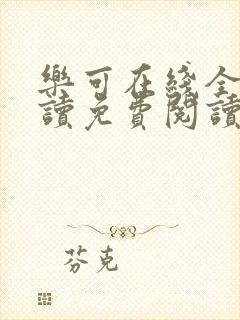 樂可在綫全
讀免費閱讀
芬克